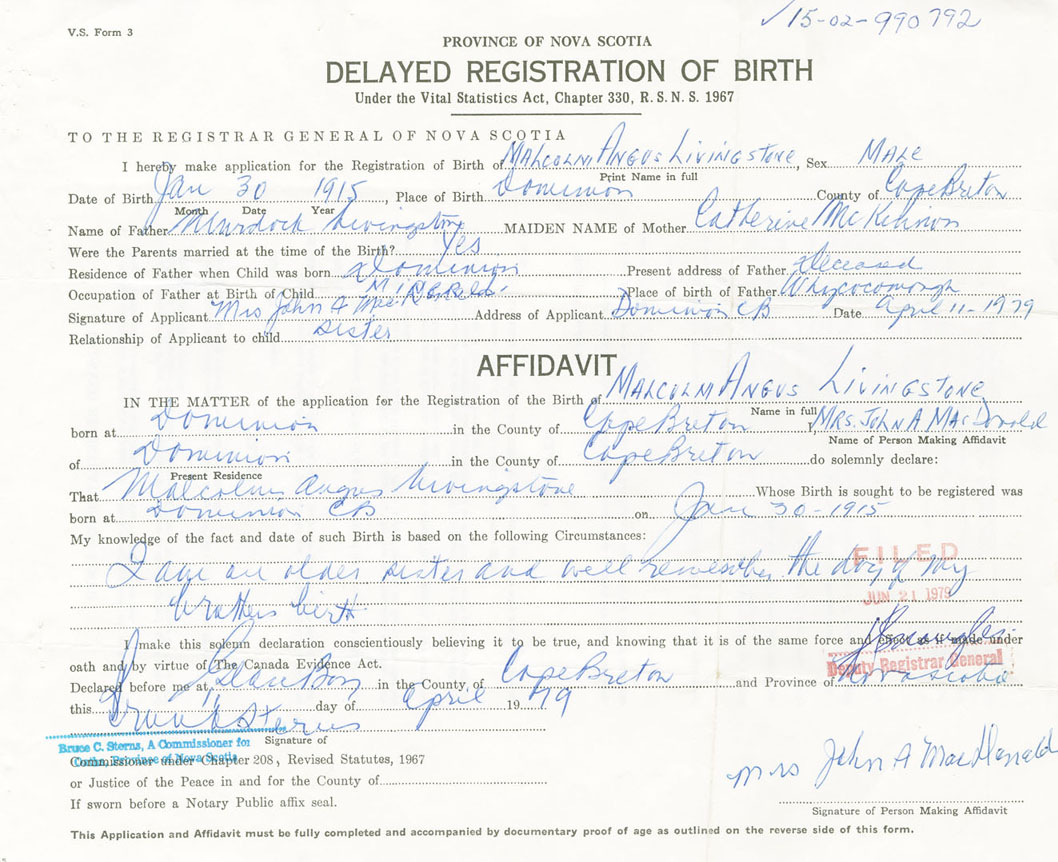 V.S. Form 3
✓15-02-990792
PROVINCE OF NOVA SCOTIA
DELAYED REGISTRATION OF BIRTH
Under the Vital Statistics Act, Chapter 330, R.S.N.S. 1967
TO THE REGISTRAR GENERAL OF NOVA SCOTIA
I hereby make application for the Registration of Birth of Malcolm Angus Livingstone, Sex Male
Print Name in full
Date of Birth Jan 30 1915, Place of Birth Dominion County of Cape Breton
Month Date Year
Name of Father Murdock Livingstone MAIDEN NAME of Mother Catherine McKinnon
Were the Parents married at the time of the Birth? Yes
Residence of Father when Child was born Dominion Present address of Father Deceased
Occupation of Father at Birth of Child Place of birth of Father Whycocomagh
Signature of Applicant Mrs John A Address of Applicant Dominion CB Date April 11-1979
Relationship of Applicant to child sister
AFFIDAVIT
IN THE MATTER of the application for the Registration of the Birth of Malcolm Angus Livingstone
Name in full
born at Dominion in the County of Cape Breton, Mrs. John A MacDonald
Name of Person Making Affidavit
of Dominion in the County of Cape Breton do solemnly declare:
Present Residence
That Malcolm Angus Livingstone Whose Birth is sought to be registered was
born at Dominion CB on Jan 30-1915
My knowledge of the fact and date of such Birth is based on the following Circumstances:
I am an older sister and well remember the day of my
brothers birth
FILED
JUN 21 1979
I make this solemn declaration conscientiously believing it to be true, and knowing that it is of the same force and effect as if made under
oath and by virtue of The Canada Evidence Act.
Deputy Registrar General
Declared before me at Glace Bay in the County of Cape Breton and Province of Nova Scotia
this day of April 1979
Signature of
Bruce C. Sterns, A Commissioner for
Province of Nova Scotia
Commissioner under Chapter 208, Revised Statutes, 1967
or Justice of the Peace in and for the County of
If sworn before a Notary Public affix seal.
Mrs John A MacDonald
Signature of Person Making Affidavit
This Application and Affidavit must be fully completed and accompanied by documentary proof of age as outlined on the reverse side of this form.